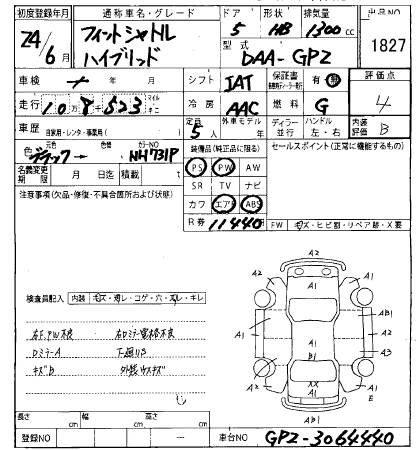 初度登録年月 通称車名・グレード ドア 形状 排気量 出品NO
24/6月 フィットシャトル ハイブリッド 5 HB 1300cc 1827
型式 DAA-GP2
車検 年 月 シフト IAT 保証書 有・無 評価点 4
走行 10万8千523 マイル キロ 冷房 AAC 燃料 G 内装評価 B
車歴 自家用・レンタ・事業用( ) 定員 5人 外車モデル 年 ディラー・並行 ハンドル 左・右
色 元色 ブラック 色替 カラーNO NH731P 装備品(純正品に限る) セールスポイント(正常に機能するもの)
名義変更期限 月 日迄 積載 t PS PW AW
注意事項(欠品・修復・不具合箇所および状態) SR TV ナビ
カワ エアB ABS
R券 11440円 FW キズ・ヒビ割・リペア跡・X要
検査員記入 内装 キズ・カレ・コゲ・穴・スレ・キレ
右F.PW不良 右Dミラー電格不良
Dミラー A 下廻りS
キズB 外装ウスキズ
A2 A1 A2 A1
A1 A1 AB1
A1 A1 A2
B1 A3
A2 XX A1
A1 E
AB1
長さ cm 幅 cm 高さ cm
登録NO 車台NO GP2-3064440